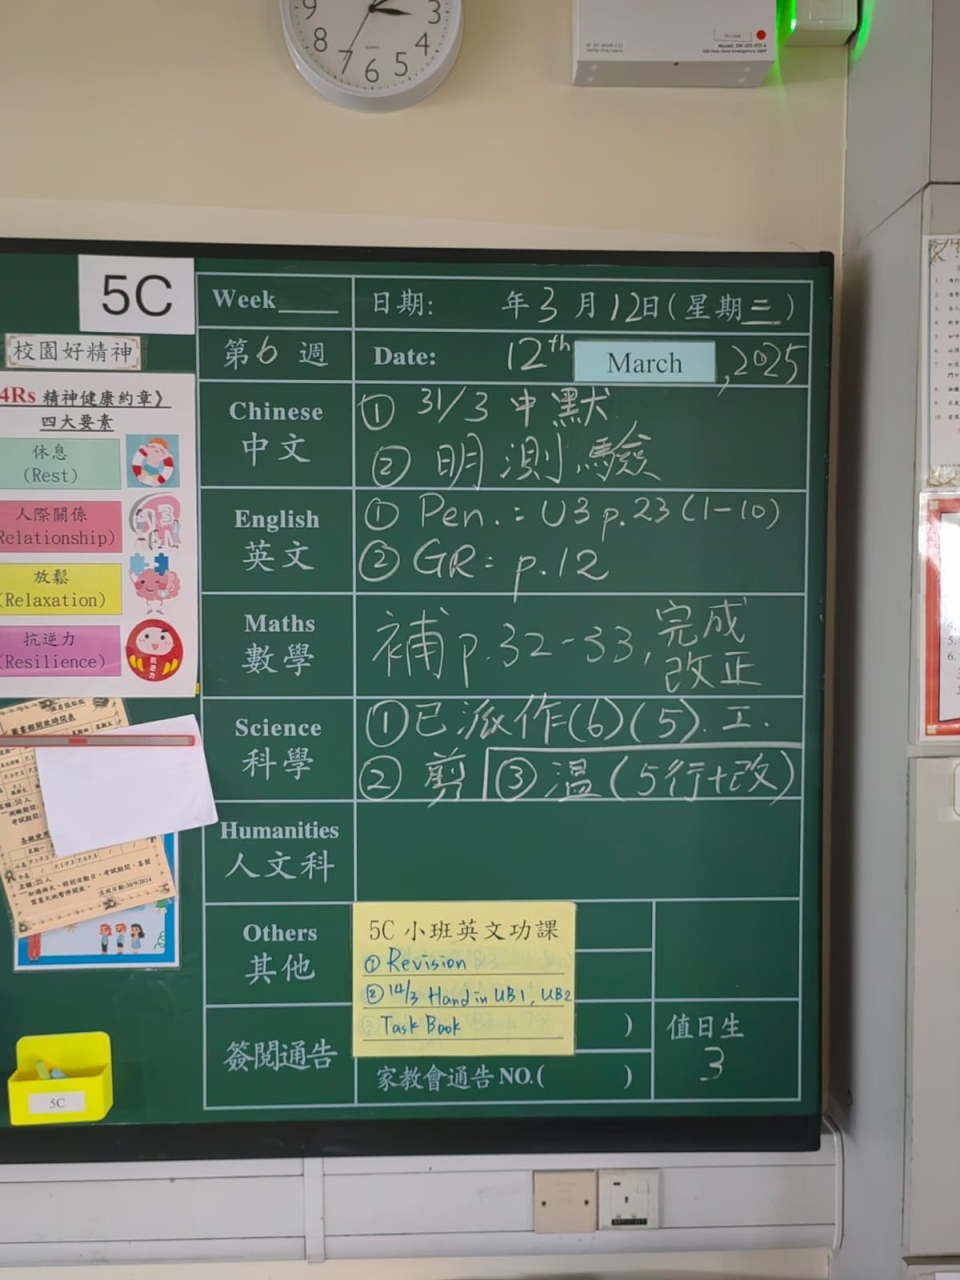 9
3
8
4
7
6
5
QUARTZ
5C
校園好精神
4Rs 精神健康約章》
四大要素
休息
(Rest)
人際關係
Relationship)
放鬆
(Relaxation)
抗逆力
(Resilience)
Week
日期: 年 3 月 12 日 ( 星期 三 )
第 6 週
Date: 12th March , 2025
Chinese
中文
① 31/3 中默
② 明測驗
English
英文
① Pen.: U3 p.23 (1-10)
② GR: p.12
Maths
數學
補 p.32-33, 完成
改正
Science
科學
① 已派作(6)(5). 工.
② 剪 ③ 溫 (5行+改)
Humanities
人文科
Others
其他
5C 小班英文功課
① Revision
② 14/3 Hand in UB1, UB2
Task Book
簽閱通告
)
家教會通告 NO.( )
值日生
3
5C